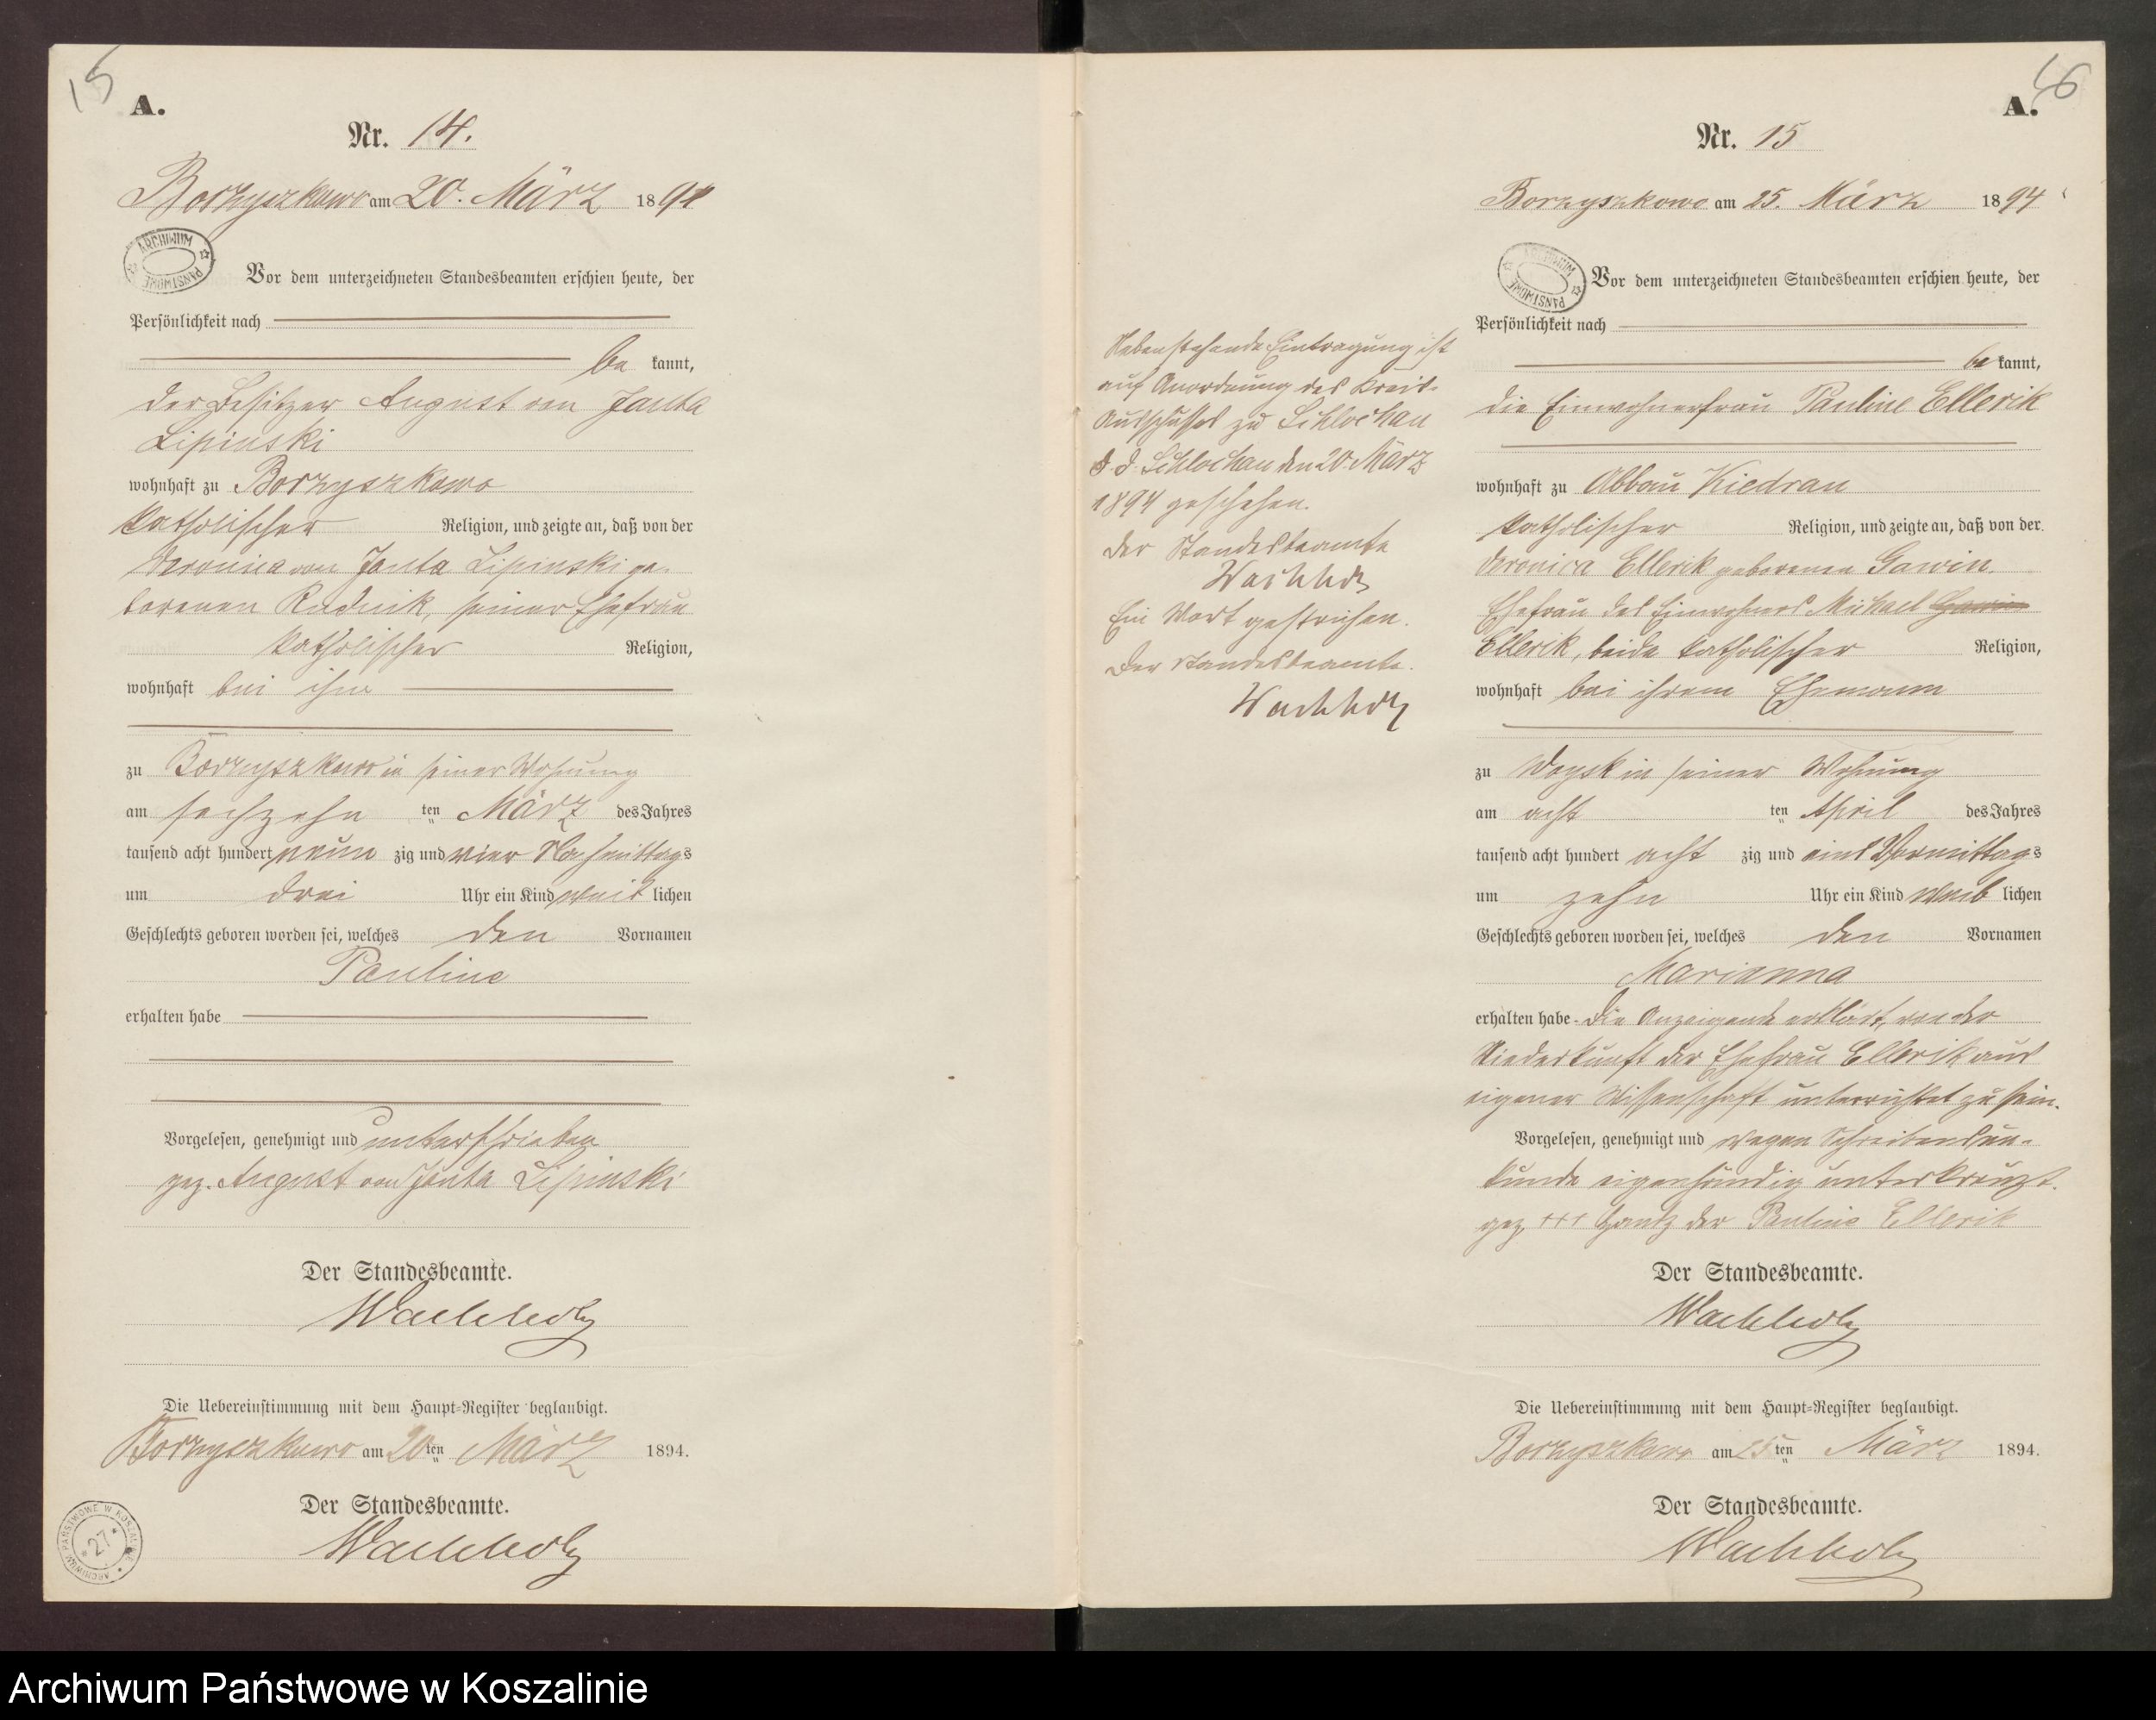 15
A.
Nr. 14.
Borzyszkowo am 20. März 1894
ARCHIWUM PAŃSTWOWE
Vor dem unterzeichneten Standesbeamten erschien heute, der
Persönlichkeit nach
be kannt,
der Besitzer August von Janta
Lipinski
wohnhaft zu Borzyszkowo
katholischer Religion, und zeigte an, daß von der
Veronica von Janta Lipinski ge-
borenen Rudnik, seiner Ehefrau
katholischer Religion,
wohnhaft bei ihm
zu Borzyszkowo in seiner Wohnung
am sechzehn ten März des Jahres
tausend acht hundert neun zig und vier Nachmittags
um drei Uhr ein Kind weib lichen
Geschlechts geboren worden sei, welches den Vornamen
Pauline
erhalten habe
Vorgelesen, genehmigt und unterschrieben
gez. August von Janta Lipinski
Der Standesbeamte.
Wachholz
Die Uebereinstimmung mit dem Haupt-Register beglaubigt.
Borzyszkowo am 20 ten März 1894.
Der Standesbeamte.
Wachholz
ARCHIWUM PAŃSTWOWE W KOSZALINIE
* 27 *
16
A.
Nr. 15
Borzyszkowo am 25. März 1894
ARCHIWUM PAŃSTWOWE
Vor dem unterzeichneten Standesbeamten erschien heute, der
Persönlichkeit nach
be kannt,
die Einwohnerfrau Pauline Ellerik
wohnhaft zu Abbau Kiedrau
katholischer Religion, und zeigte an, daß von der
Veronica Ellerik geborenen Gawin
Ehefrau des Einwohners Michael Gawin
Ellerik, beide katholischer Religion,
wohnhaft bei ihrem Ehemann
zu Woysk in seiner Wohnung
am acht ten April des Jahres
tausend acht hundert acht zig und eins Vormittags
um zehn Uhr ein Kind weib lichen
Geschlechts geboren worden sei, welches den Vornamen
Marianna
erhalten habe. Die Anzeigende erklärt, von der
Niederkunft der Ehefrau Ellerik aus
eigener Wissenschaft unterrichtet zu sein.
Vorgelesen, genehmigt und wegen Schreibensun-
kunde eigenhändig unterkreuzt.
gez. +++ Handz. der Pauline Ellerik
Der Standesbeamte.
Wachholz
Die Uebereinstimmung mit dem Haupt-Register beglaubigt.
Borzyszkowo am 25 ten März 1894.
Der Standesbeamte.
Wachholz
Nebenstehende Eintragung ist
auf Anordnung des Kreis-
Ausschusses zu Schlochau
d. d. Schlochau den 20. März
1894 geschehen.
Der Standesbeamte
Wachholz
Ein Wort gestrichen.
Der Standesbeamte.
Wachholz
Archiwum Państwowe w Koszalinie